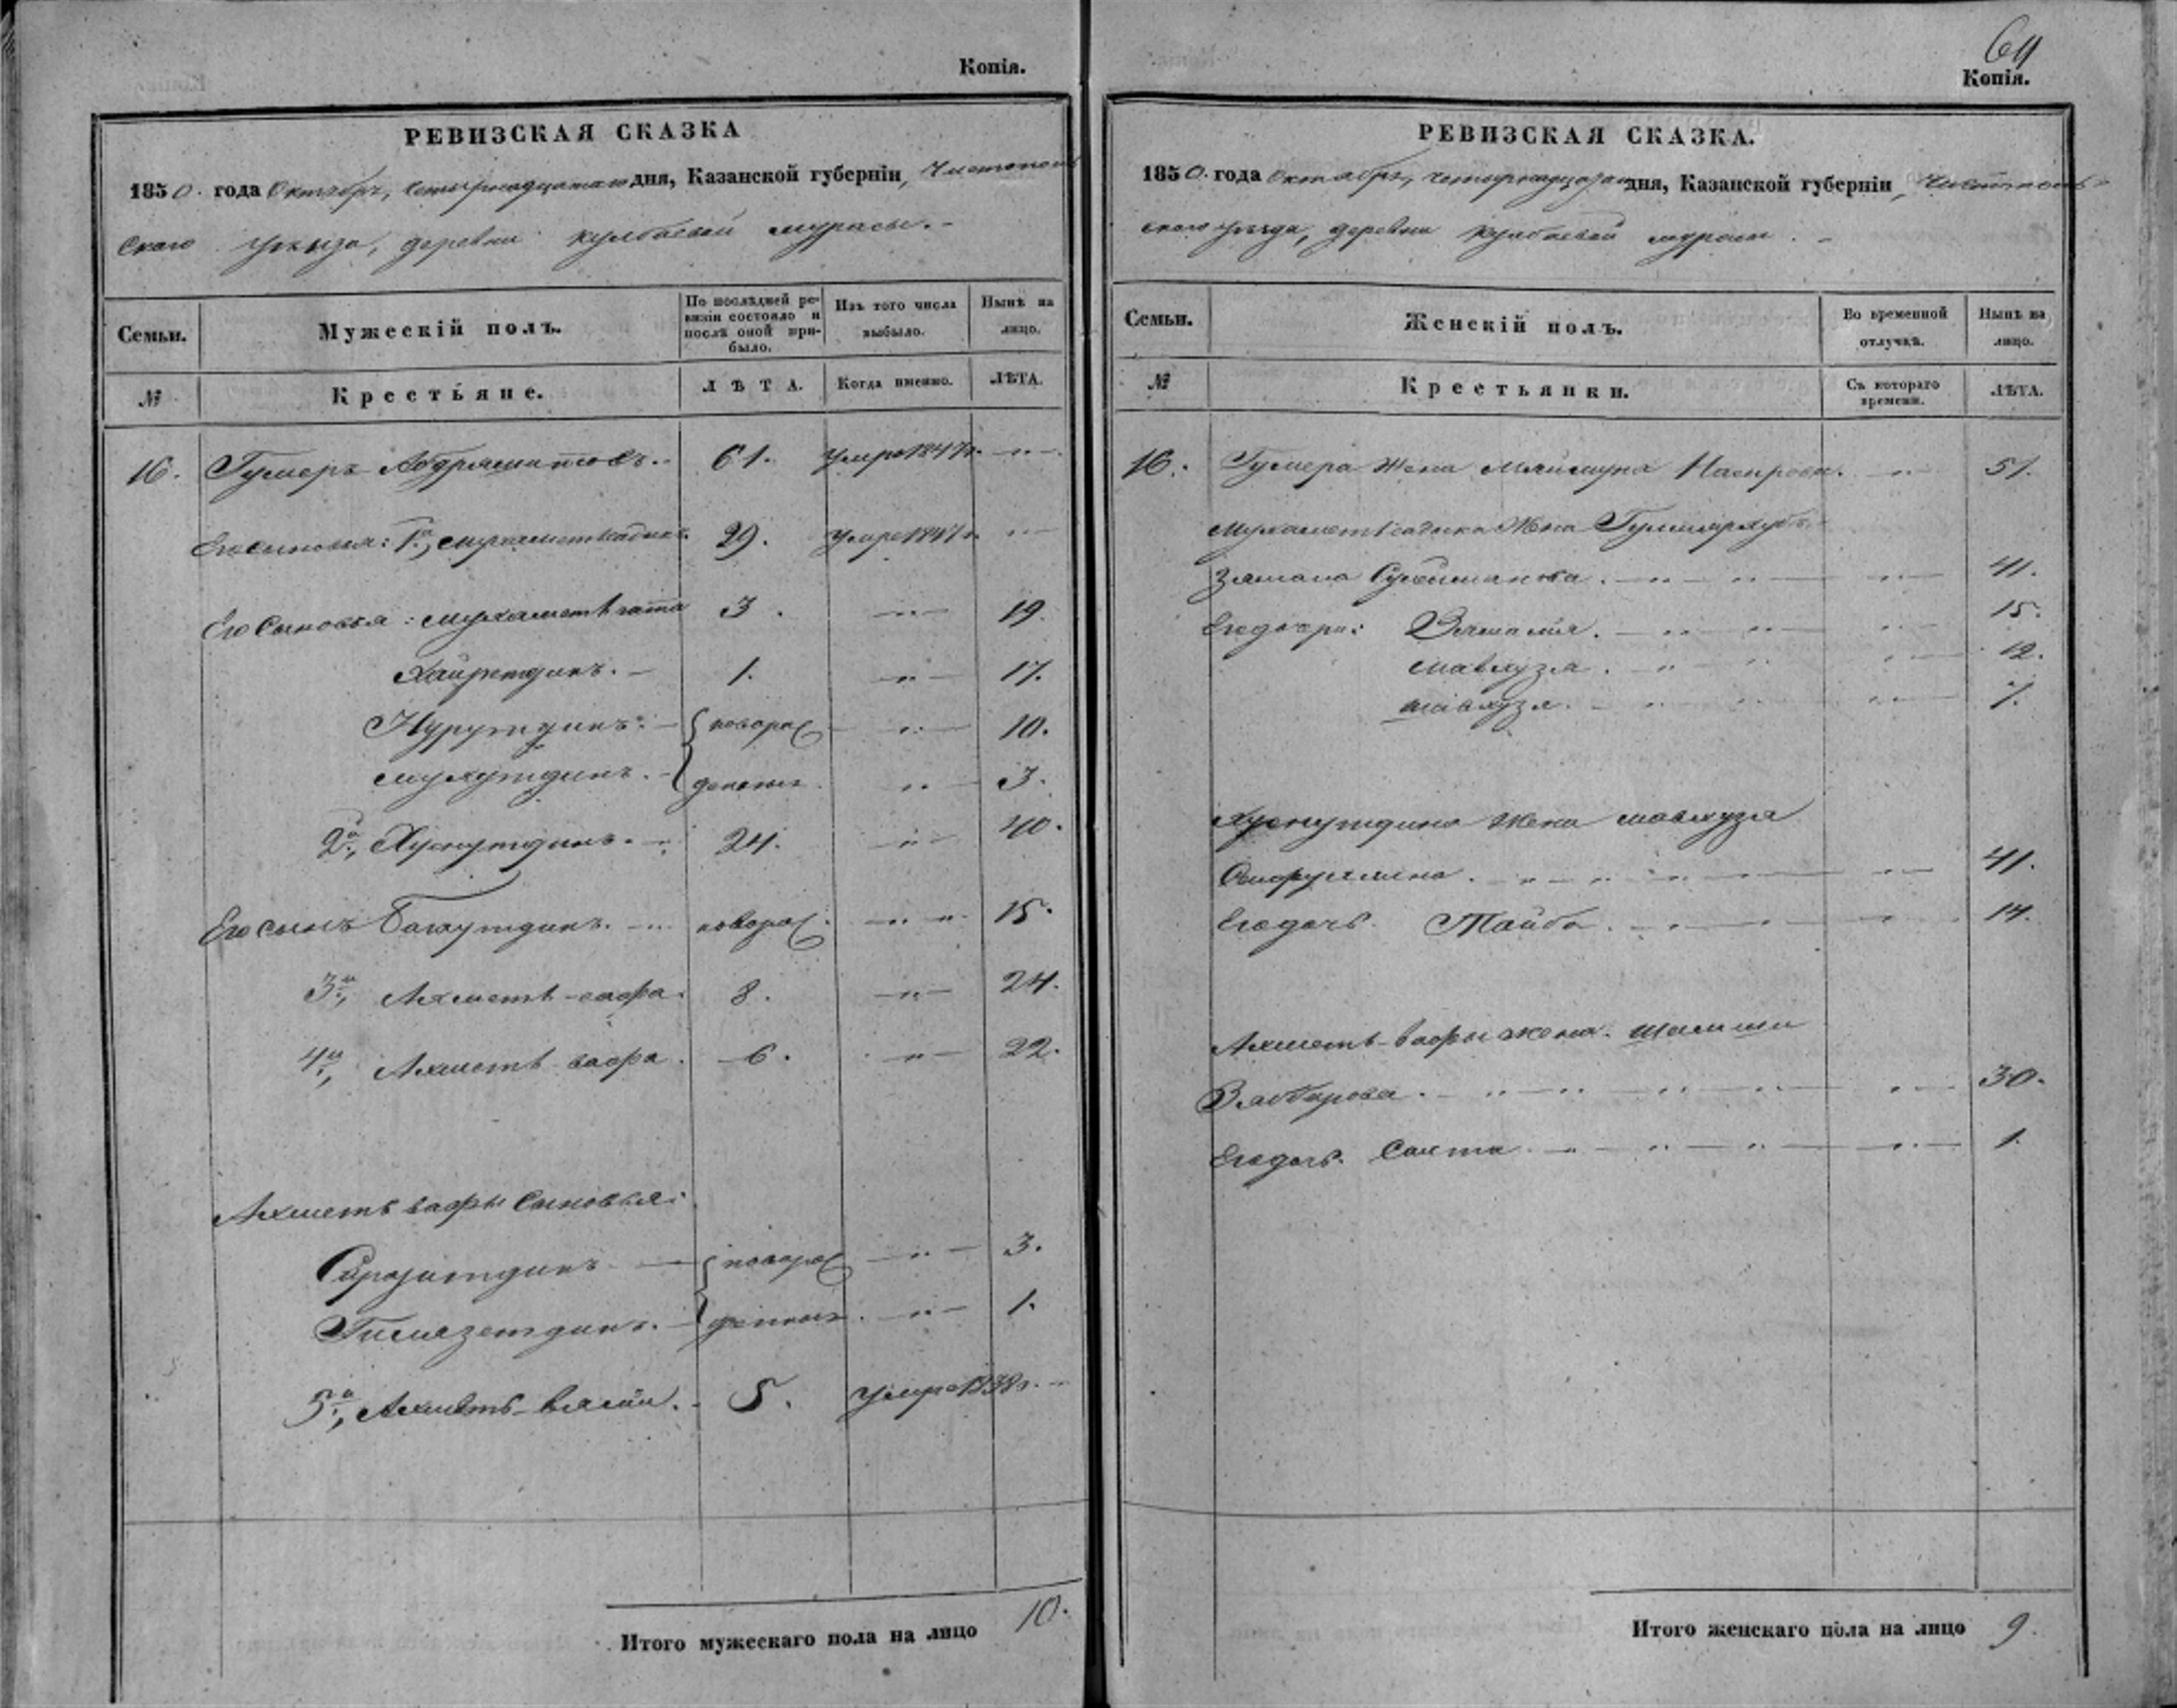 Копія.
РЕВИЗСКАЯ СКАЗКА
1850. года Октября, четырнадцатаго дня, Казанской губерніи, Чистополь
скаго уѣзда, деревни Кулбаевой мурасы.
Семьи.
Мужескій полъ.
По послѣдней ре-
визіи состояло и
послѣ оной при-
было.
Изъ того числа
выбыло.
Нынѣ на
лицо.
№
Крестьяне.
ЛѢТА.
Когда именно.
ЛѢТА.
16. Гумеръ 61. Умре 1847г.
Его сыновья: 1й, Мухаметьсадыкъ 29. Умре 1847г.
Его Сыновья: Мухаметьгатта 3. 19.
Хайретдинъ. 1. 17.
Нурутдинъ. новорож 10.
Мухутдинъ. денные 3.
2й, Хуснутдинъ. 24. 40.
Его сынъ Багаутдинъ. новорож. 15.
3й, Ахметь-сафа. 8. 24.
4й, Ахметь вафа. 6. 22.
Ахметь вафы Сыновья:
Сиразитдинъ новорож 3.
Гимазетдинъ. денные 1.
5й, Ахметь-вали. 5. Умре 1838г.
Итого мужескаго пола на лицо 10.
64
Копія.
РЕВИЗСКАЯ СКАЗКА.
1850. года Октября, четырнадцатаго дня, Казанской губерніи, Чистополь-
скаго уѣзда, деревни Кулбаевой мурасы.
Семьи.
Женскій полъ.
Во временной
отлучкѣ.
Нынѣ на
лицо.
№
Крестьянки.
Съ котораго
времени.
ЛѢТА.
16. Гумера Жена Маймуна Насырова. 51.
Мухаметьсадыка Жена
Сулейманова. 41.
Его дочери: 15.
Мавлюза. 12.
7.
Хуснутдина Жена Мавлюза
41.
Его дочь Тайба. 14.
Ахметь-вафы жена.
30.
Его дочь. 1.
Итого женскаго пола на лицо 9.